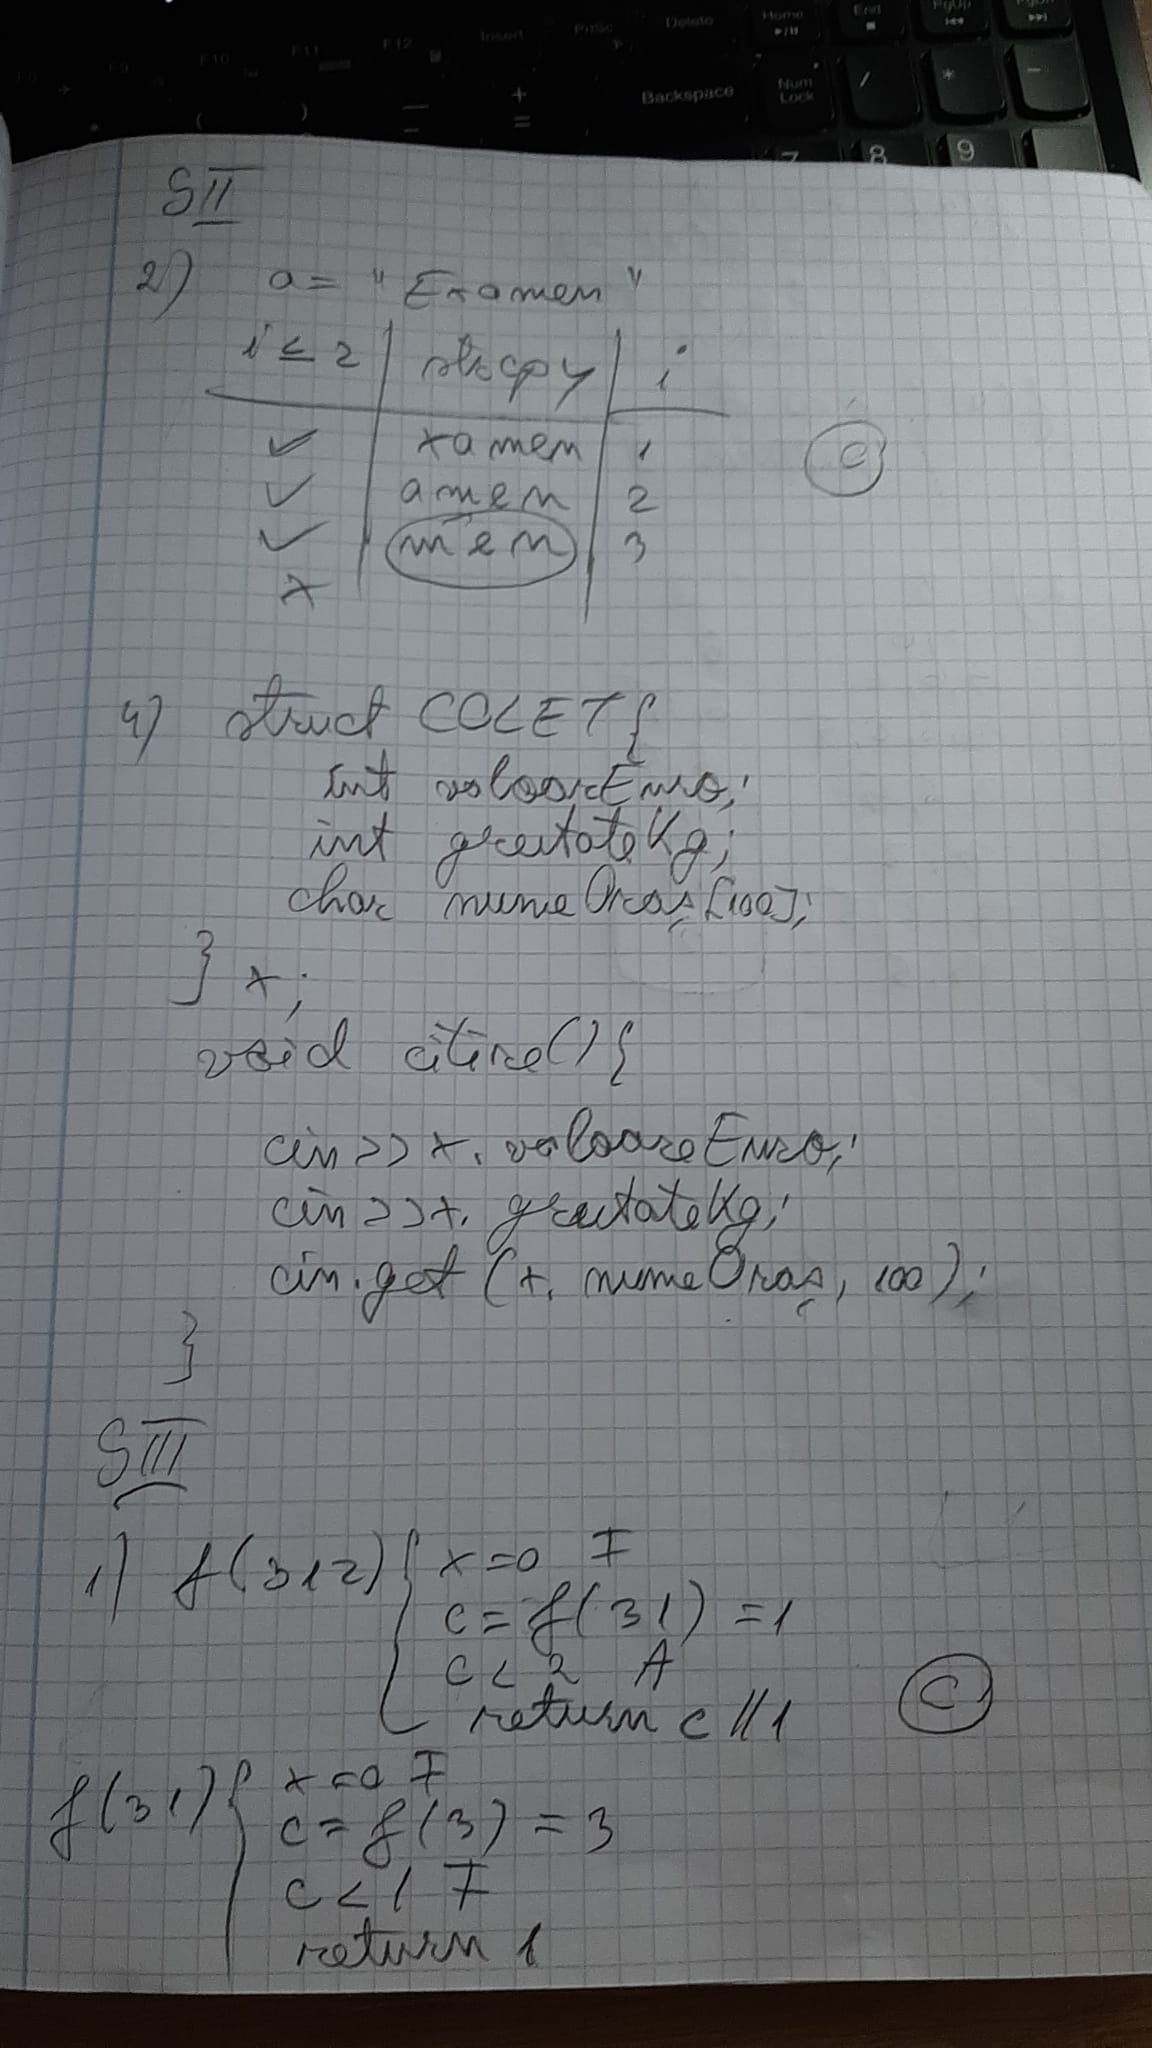 F9
F10
F11
F12
Insert
PrtSc
Delete
Home
End
PgUp
PgDn
( ) — + Backspace Num Lock / * -
- =
7 8 9
SII
2) a = "Examen"
i ≤ 2 | strcpy | i
✓ | xamen | 1 C
✓ | amen | 2
✓ | men | 3
x
4) struct COLET{
int valoareEuro;
int greutateKg;
char numeOraș[100];
} x;
void citire(){
cin>>x.valoareEuro;
cin>>x.greutateKg;
cin.get(x.numeOraș, 100);
}
SIII
1) f(312) { x=0 F
c = f(31) = 1
c < 2 A
return c //1 C
f(31) { x=0 F
c = f(3) = 3
c < 1 F
return 1